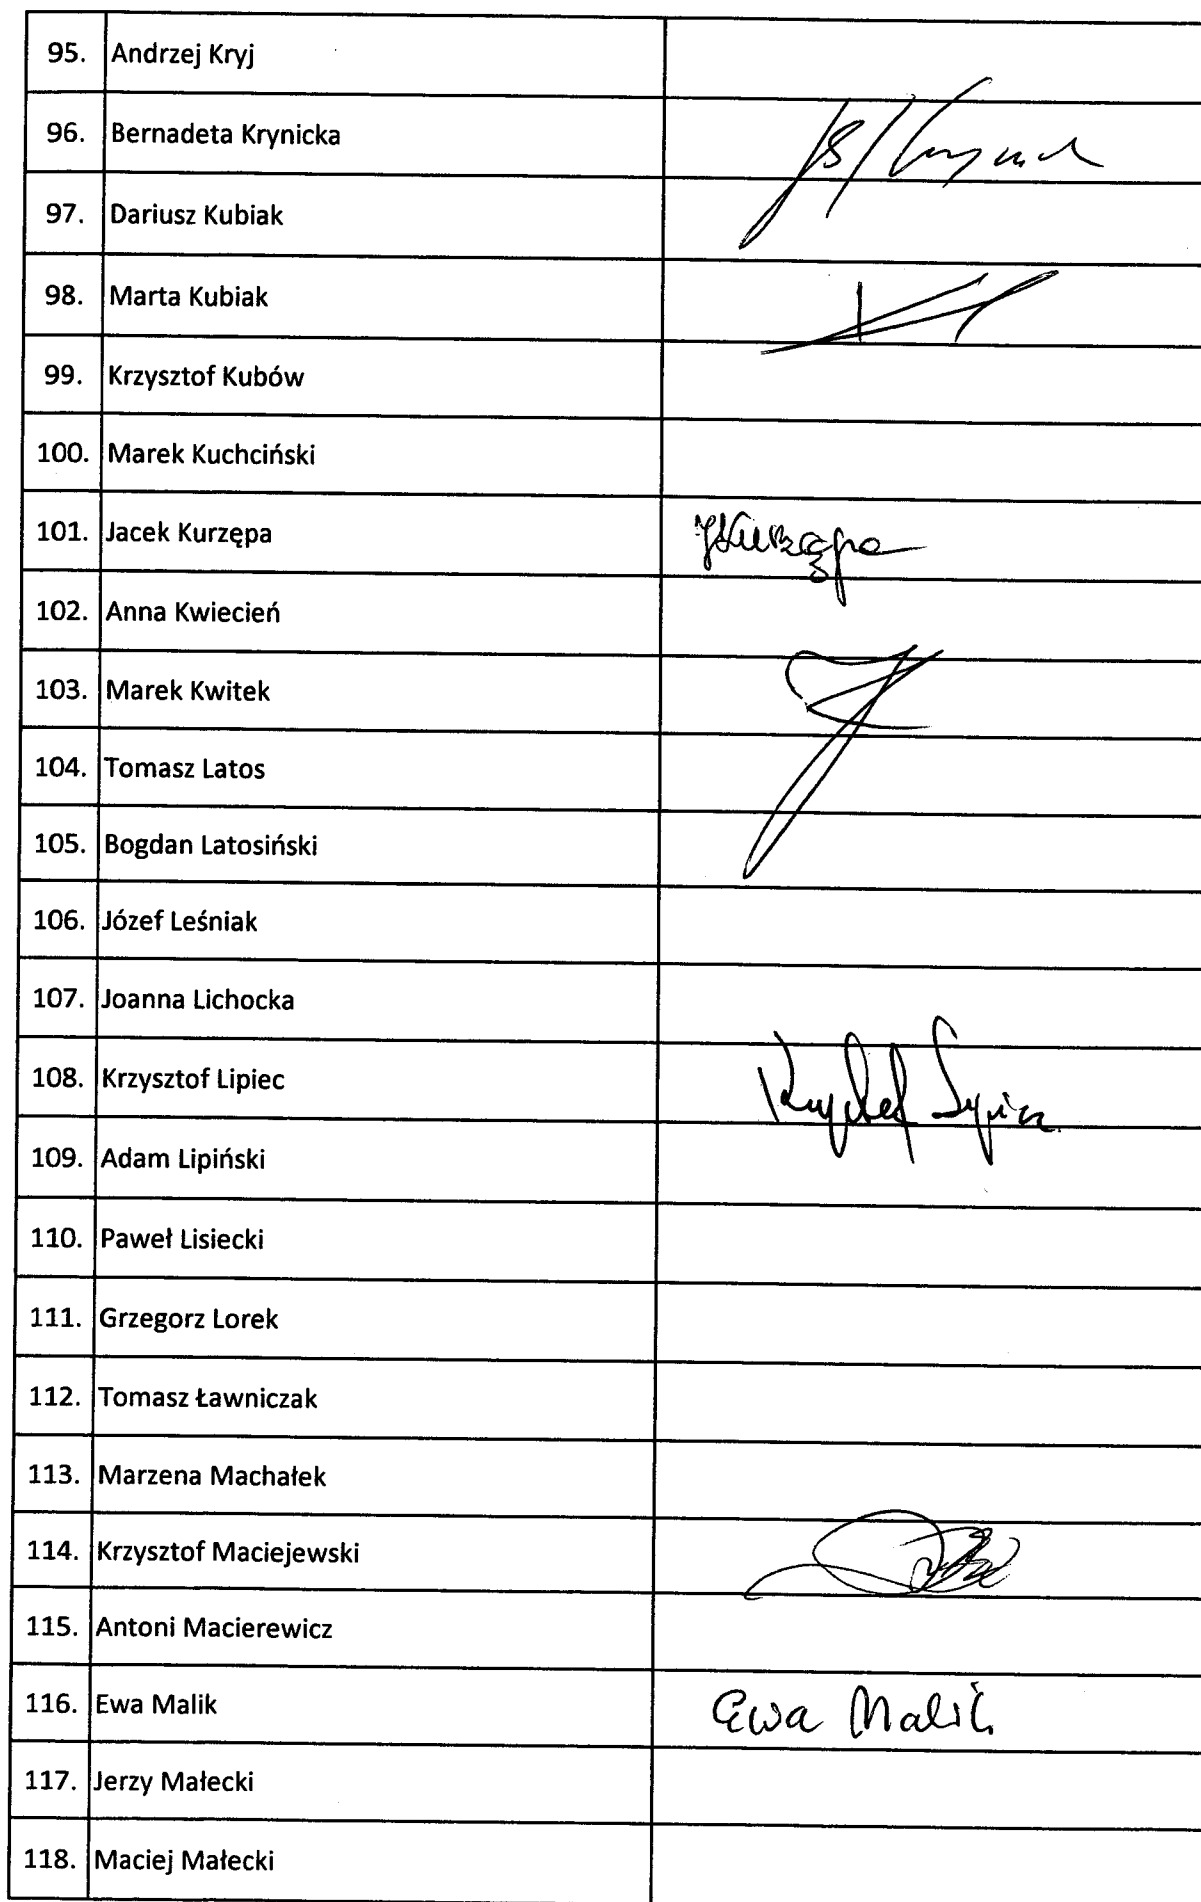 95. Andrzej Kryj
96. Bernadeta Krynicka
97. Dariusz Kubiak
98. Marta Kubiak
99. Krzysztof Kubów
100. Marek Kuchciński
101. Jacek Kurzępa JKurzępa
102. Anna Kwiecień
103. Marek Kwitek
104. Tomasz Latos
105. Bogdan Latosiński
106. Józef Leśniak
107. Joanna Lichocka
108. Krzysztof Lipiec
109. Adam Lipiński
110. Paweł Lisiecki
111. Grzegorz Lorek
112. Tomasz Ławniczak
113. Marzena Machałek
114. Krzysztof Maciejewski
115. Antoni Macierewicz
116. Ewa Malik Ewa Malik
117. Jerzy Małecki
118. Maciej Małecki